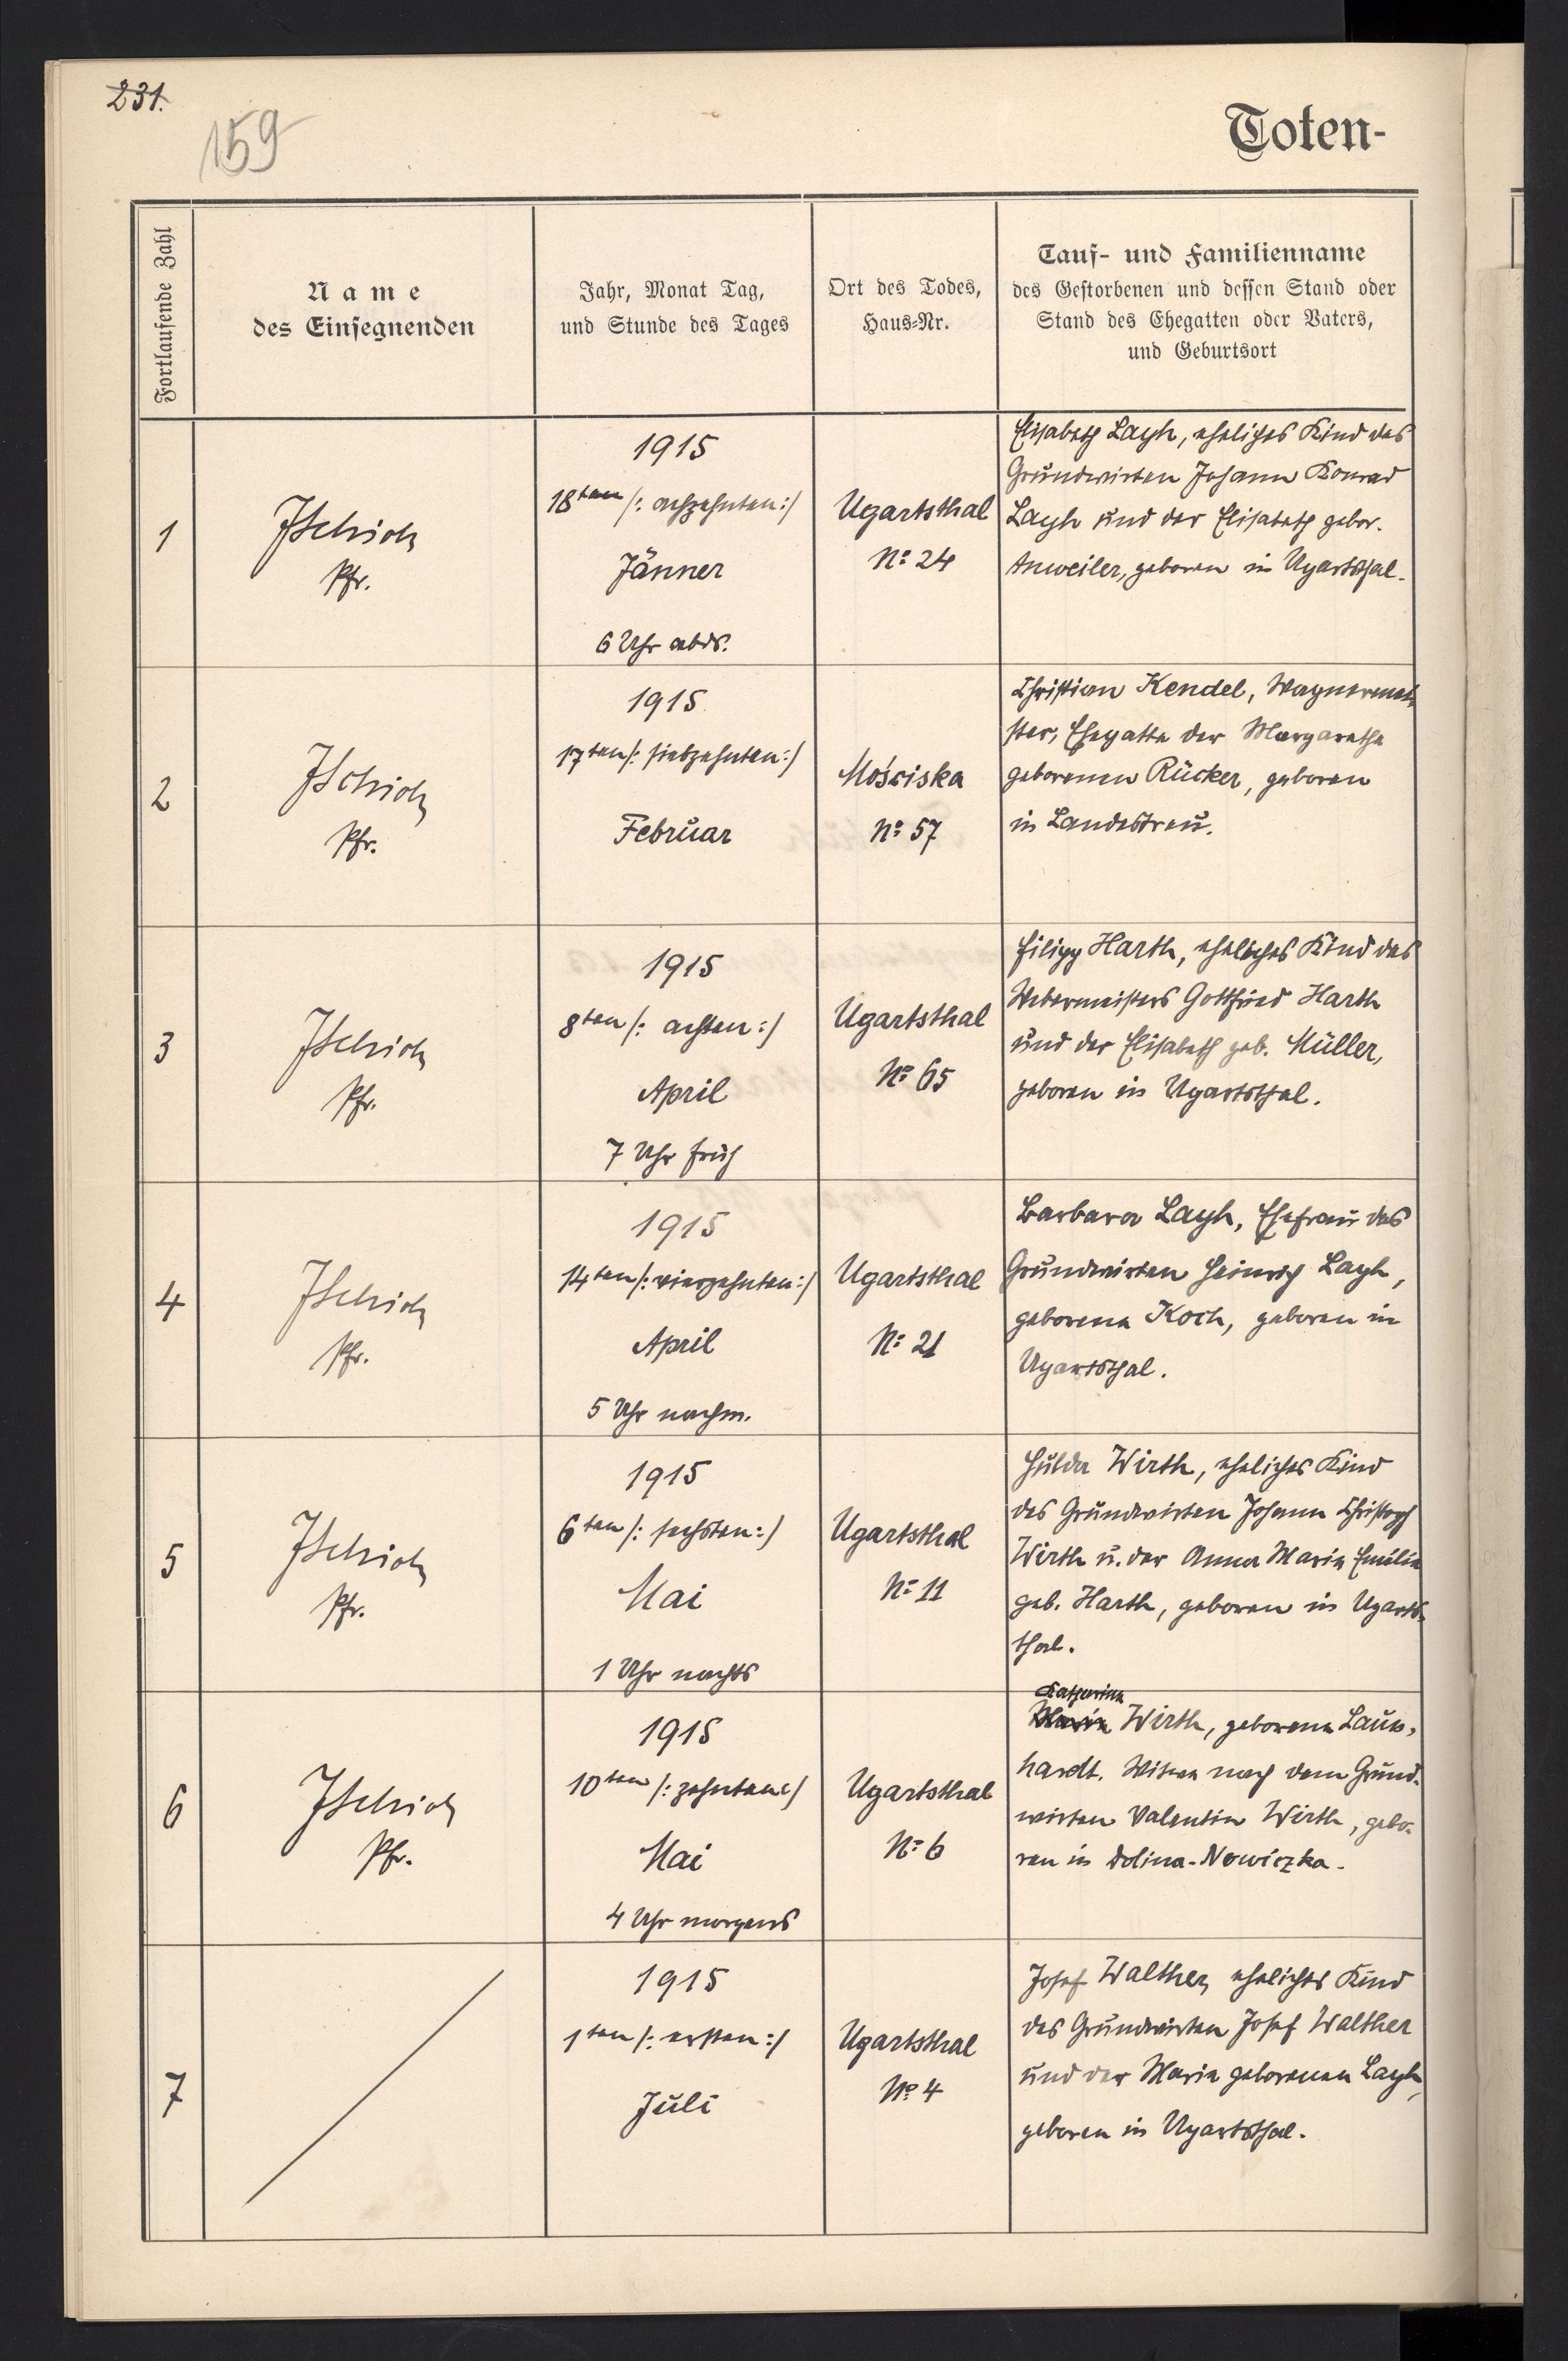 231.
159
Toten-
Fortlaufende Zahl
Name
des Einsegnenden
Jahr, Monat Tag,
und Stunde des Tages
Ort des Todes,
Haus-Nr.
Tauf- und Familienname
des Gestorbenen und dessen Stand oder
Stand des Ehegatten oder Vaters,
und Geburtsort
1
Pfr.
1915
18ten /: achzehnten :/
Jänner
6 Uhr abds.
Ugartsthal
No 24
Elisabeth Layh, eheliches Kind des
Grundwirten Johann Konrad
Layh und der Elisabeth gebor.
Anweiler, geboren in Ugartsthal.
2
Pfr.
1915
17ten /: siebzehnten :/
Februar
Mościska
No 57
Christian Kendel, Wagnermei-
ster, Ehegatte der Margarethe
geborenen Rücker, geboren
in Landestreu.
3
Pfr.
1915
8ten /: achten :/
April
7 Uhr früh
Ugartsthal
No 65
Filipp Harth, eheliches Kind des
Webermeisters Gottfried Harth
und der Elisabeth geb. Müller,
geboren in Ugartsthal.
4
Pfr.
1915
14ten /: vierzehnten :/
April
5 Uhr nachm.
Ugartsthal
No 21
Barbara Layh, Ehefrau des
Grundwirten Heinrich Layh,
geborene Koch, geboren in
Ugartsthal.
5
Pfr.
1915
6ten /: sechsten :/
Mai
1 Uhr nachts
Ugartsthal
No 11
Hulda Wirth, eheliches Kind
des Grundwirten Johann Christoph
Wirth u. der Anna Maria Emilie
geb. Harth, geboren in Ugarts-
thal.
6
Pfr.
1915
10ten /: zehnten :/
Mai
4 Uhr morgens
Ugartsthal
No 6
Katharina
Maria Wirth, geborene Laun-
hardt. Witwe nach dem Grund-
wirten Valentin Wirth, gebo-
ren in Dolina-Nowiczka.
7
1915
1ten /: ersten :/
Juli
Ugartsthal
No 4
Josef Walther, eheliches Kind
des Grundwirten Josef Walther
und der Maria geborenen Layh,
geboren in Ugartsthal.